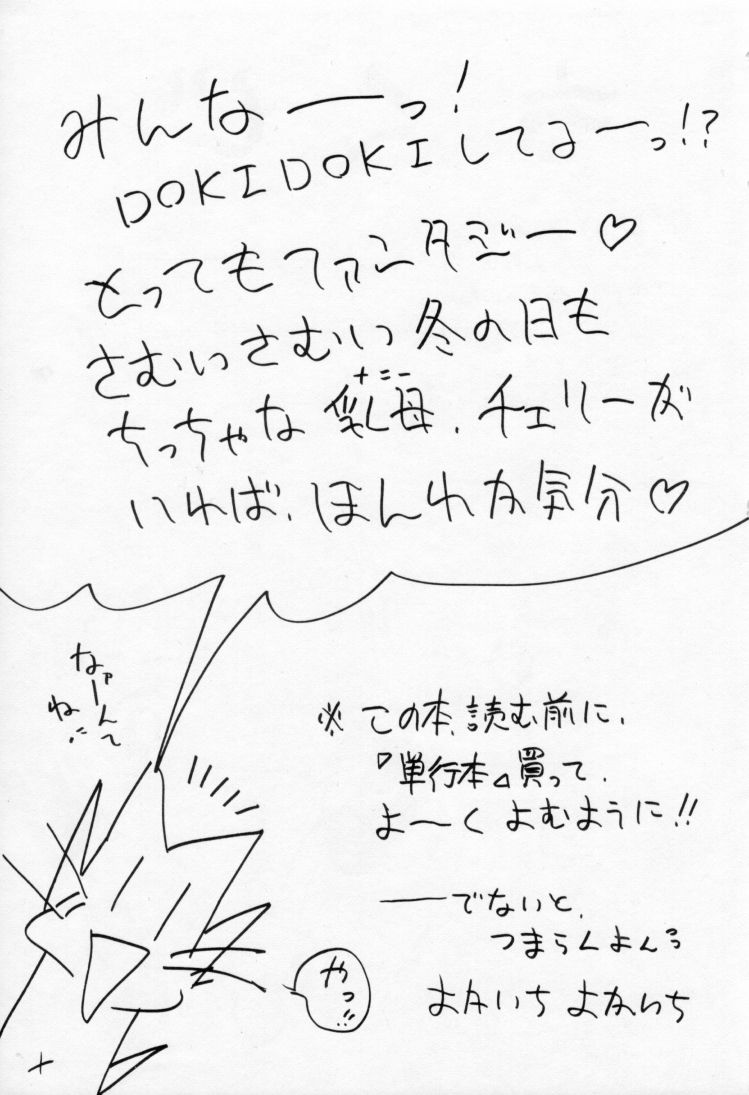 みんなーーっ!
DOKIDOKIしてるーっ!?
とってもファンタジー♡
さむいさむい冬の日も
ちっちゃな乳母、チェリーが
いれば、ほんわか気分♡
なァーんて
ね
※この本、読む前に、
『単行本』買って、
よ〜くよむように!!
──でないと、
つまらんよん
やっ